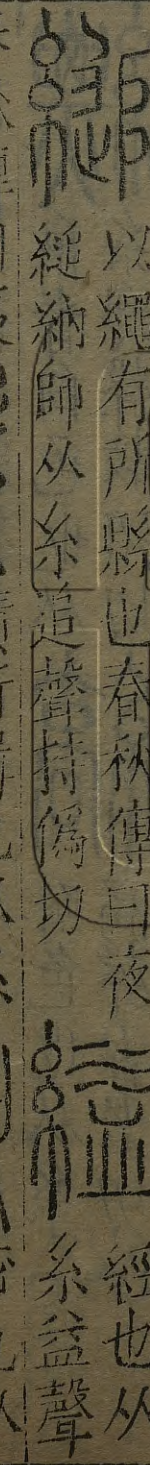 縋
以繩有所縣也春秋傳曰夜
縋納師从糸追聲持僞切
縊
經也从
糸益聲